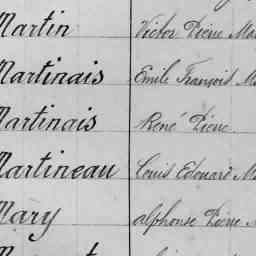 Martin Victor Pierre
Martinais Emile François
Martinais René Pierre
Martineau Louis Edouard
Mary alphonse Pierre